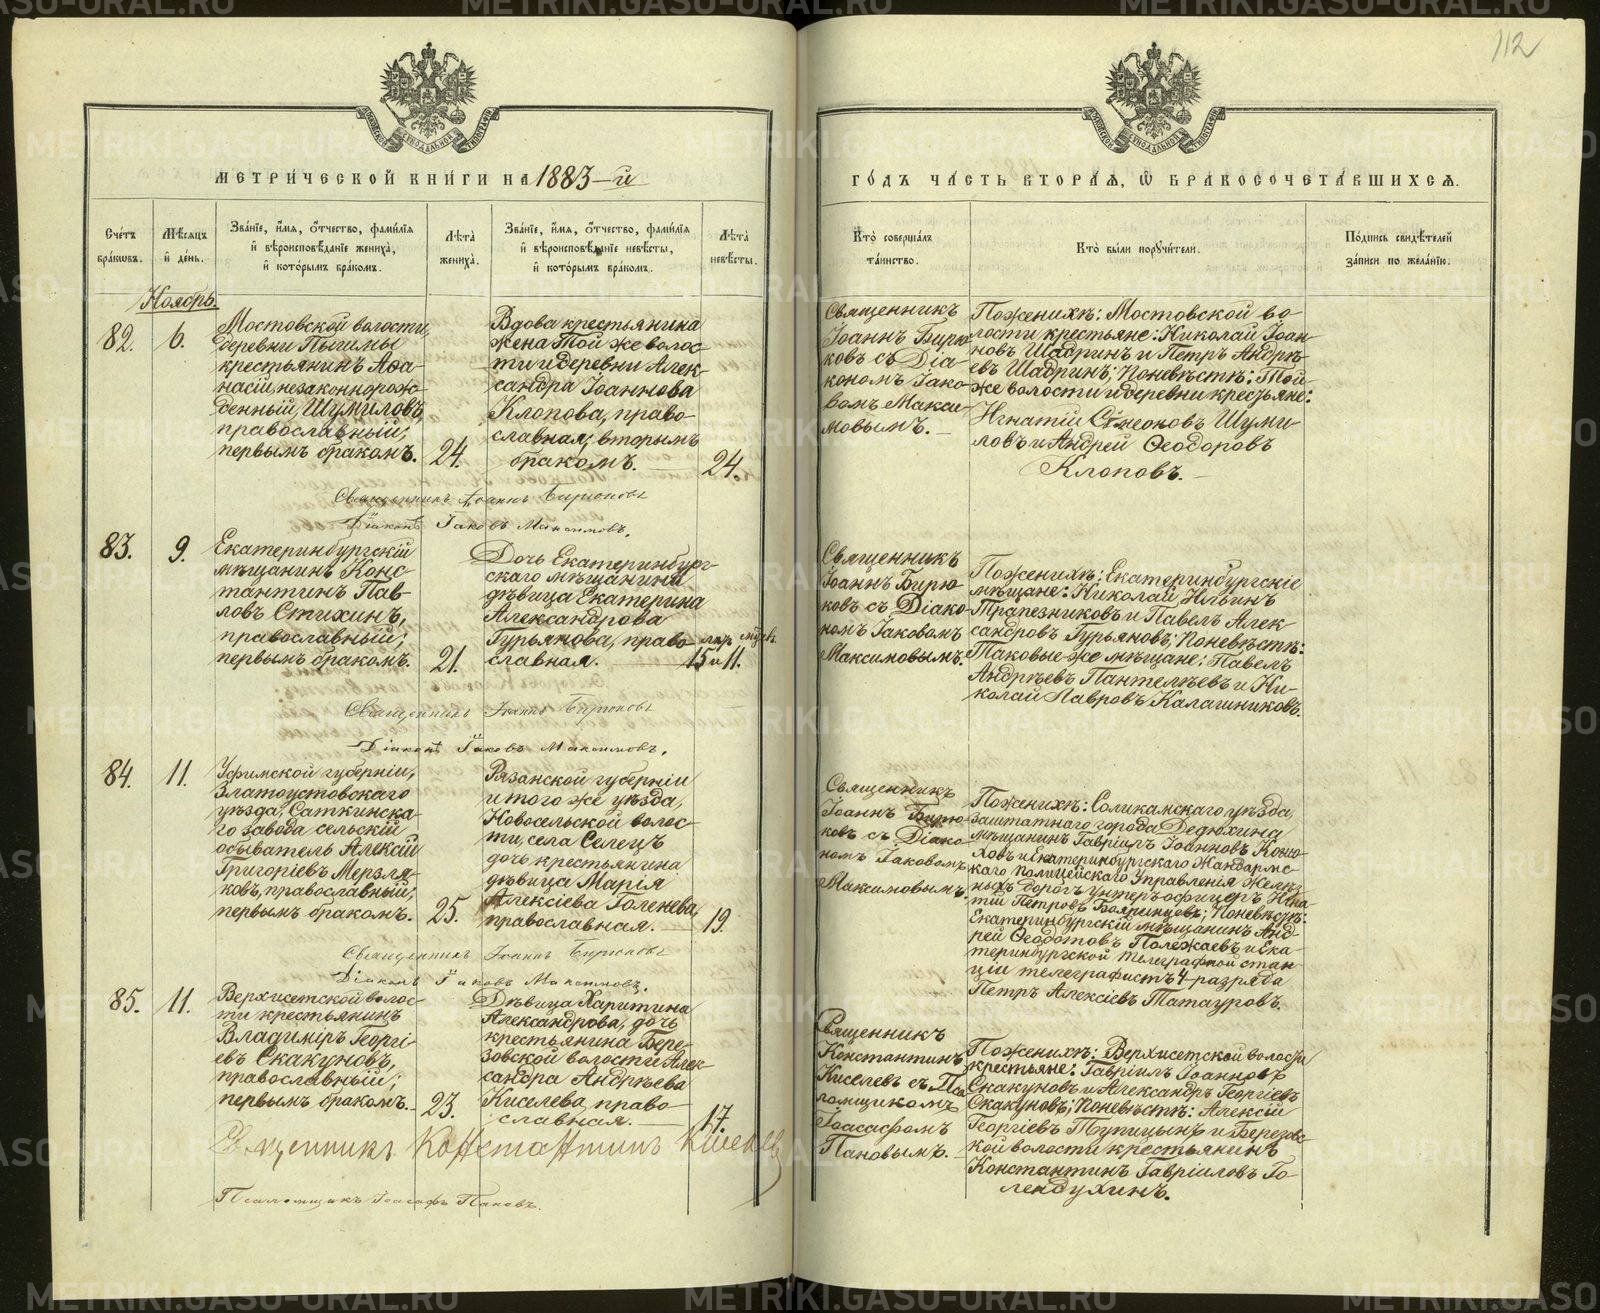 112
МЕТРИ́ЧЕСКОЙ КНИ́ГИ НА 1883-й
ГО́ДЪ ЧА́СТЬ ВТОРА́Я, Ѡ БРАКОСОЧЕТА́ВШИХСЯ.
Сче́тъ
бра́ковъ.
Мѣ́сяцъ
и́ день.
Зва́нїе, и́мя, ѻ́тчество, фами́лїя
и́ вѣроисповѣ́данїе жениха̀,
и́ кото́рымъ бра́комъ.
Лѣ́та
жениха̀.
Зва́нїе, и́мя, ѻ́тчество, фами́лїя
и́ вѣроисповѣ́данїе невѣ́сты,
и́ кото́рымъ бра́комъ.
Лѣ́та
невѣ́сты.
Кто̀ соверша́лъ
та́инство.
Кто̀ бы́ли поручи́тели.
По́дпись свидѣ́телей
за́писи по жела́нїю.
Ноябрь.
82.
6.
Мостовской волости,
деревни Пышмы
крестьянинъ Афа-
насій, незаконнорож-
денный, Шумиловъ,
православный;
первымъ бракомъ.
24.
Вдова крестьянина
жена той же волос-
ти и деревни Алек-
сандра Іоаннова
Клопова, право-
славная, вторымъ
бракомъ.
24.
Священникъ
Іоаннъ Бирю-
ковъ съ Діа-
кономъ Іако-
вомъ Макси-
мовымъ.
По женихѣ: Мостовской во-
лости крестьяне: Николай Іоан-
новъ Шадринъ и Петръ Андрѣ-
евъ Шадринъ; По невѣстѣ: Той
же волости и деревни крестьяне:
Игнатій Симеоновъ Шуми-
ловъ и Андрей Ѳеодоровъ
Клоповъ.
Священникъ Іоаннъ Бирюковъ
Діаконъ Іаковъ Максимовъ.
83.
9.
Екатеринбургскій
мѣщанинъ Конс-
тантинъ Пав-
ловъ Стихинъ,
православный;
первымъ бракомъ.
21.
Дочь Екатеринбург-
скаго мѣщанина
дѣвица Екатерина
Александрова
Гурьянова, право-
славная.
15 и 11.
Священникъ
Іоаннъ Бирю-
ковъ съ Діако-
номъ Іаковомъ
Максимовымъ.
По женихѣ: Екатеринбургскіе
мѣщане: Николай Ильинъ
Трапезниковъ и Павелъ Алек-
сандровъ Гурьяновъ; По невѣстѣ:
Таковые же мѣщане: Павелъ
Андрѣевъ Пантелѣевъ и Ни-
колай Лавровъ Калашниковъ.
Священникъ Іоаннъ Бирюковъ
Діаконъ Іаковъ Максимовъ.
84.
11.
Уфимской губерніи,
Златоустовскаго
уѣзда, Саткинска-
го завода сельскій
обыватель Алексій
Григоріевъ Мерзля-
ковъ, православный,
первымъ бракомъ.
25.
Рязанской губерніи
и того же уѣзда,
Новосельской волос-
ти, села Селецъ
дочь крестьянина
дѣвица Марія
Алексіева Голенева,
православная.
19.
Священникъ
Іоаннъ Бирю-
ковъ съ Діако-
номъ Іаковомъ
Максимовымъ.
По женихѣ: Соликамскаго уѣзда,
заштатнаго города Дедюхина
мѣщанинъ Гавріилъ Іоанновъ Коню-
ховъ и Екатеринбургскаго Жандармс-
каго полицейскаго Управленія желѣз-
ныхъ дорогъ унтеръ офицеръ Игна-
тій Петровъ Бояринцевъ; По невѣстѣ:
Екатеринбургскій мѣщанинъ Анд-
рей Ѳеодотовъ Полежаевъ и Ека-
теринбургской телеграфной стан-
ціи телеграфистъ 4 разряда
Петръ Алексіевъ Татауровъ.
Священникъ Іоаннъ Бирюковъ
Діаконъ Іаковъ Максимовъ.
85.
11.
Верхисетской волос-
ти крестьянинъ
Владиміръ Георгі-
евъ Скакуновъ,
православный;
первымъ бракомъ.
23.
Дѣвица Харитина
Александрова, дочь
крестьянина Бере-
зовской волости Алек-
сандра Андрѣева
Киселева, право-
славная.
17.
Священникъ
Константинъ
Киселевъ съ Пса-
ломщикомъ
Іоасафомъ
Пановымъ.
По женихѣ: Верхисетской волости
крестьяне: Гавріилъ Іоанновъ
Скакуновъ и Александръ Георгіевъ
Скакуновъ; По невѣстѣ: Алексій
Георгіевъ Тупицынъ и Березовс-
кой волости крестьянинъ
Константинъ Гавріиловъ Го-
лендухинъ.
Священникъ Константинъ Киселевъ
Псаломщикъ Іоасафъ Пановъ.